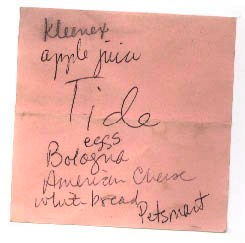 Kleenex
apple juice
Tide
eggs
Bologna
American Cheese
white bread
Petsmart